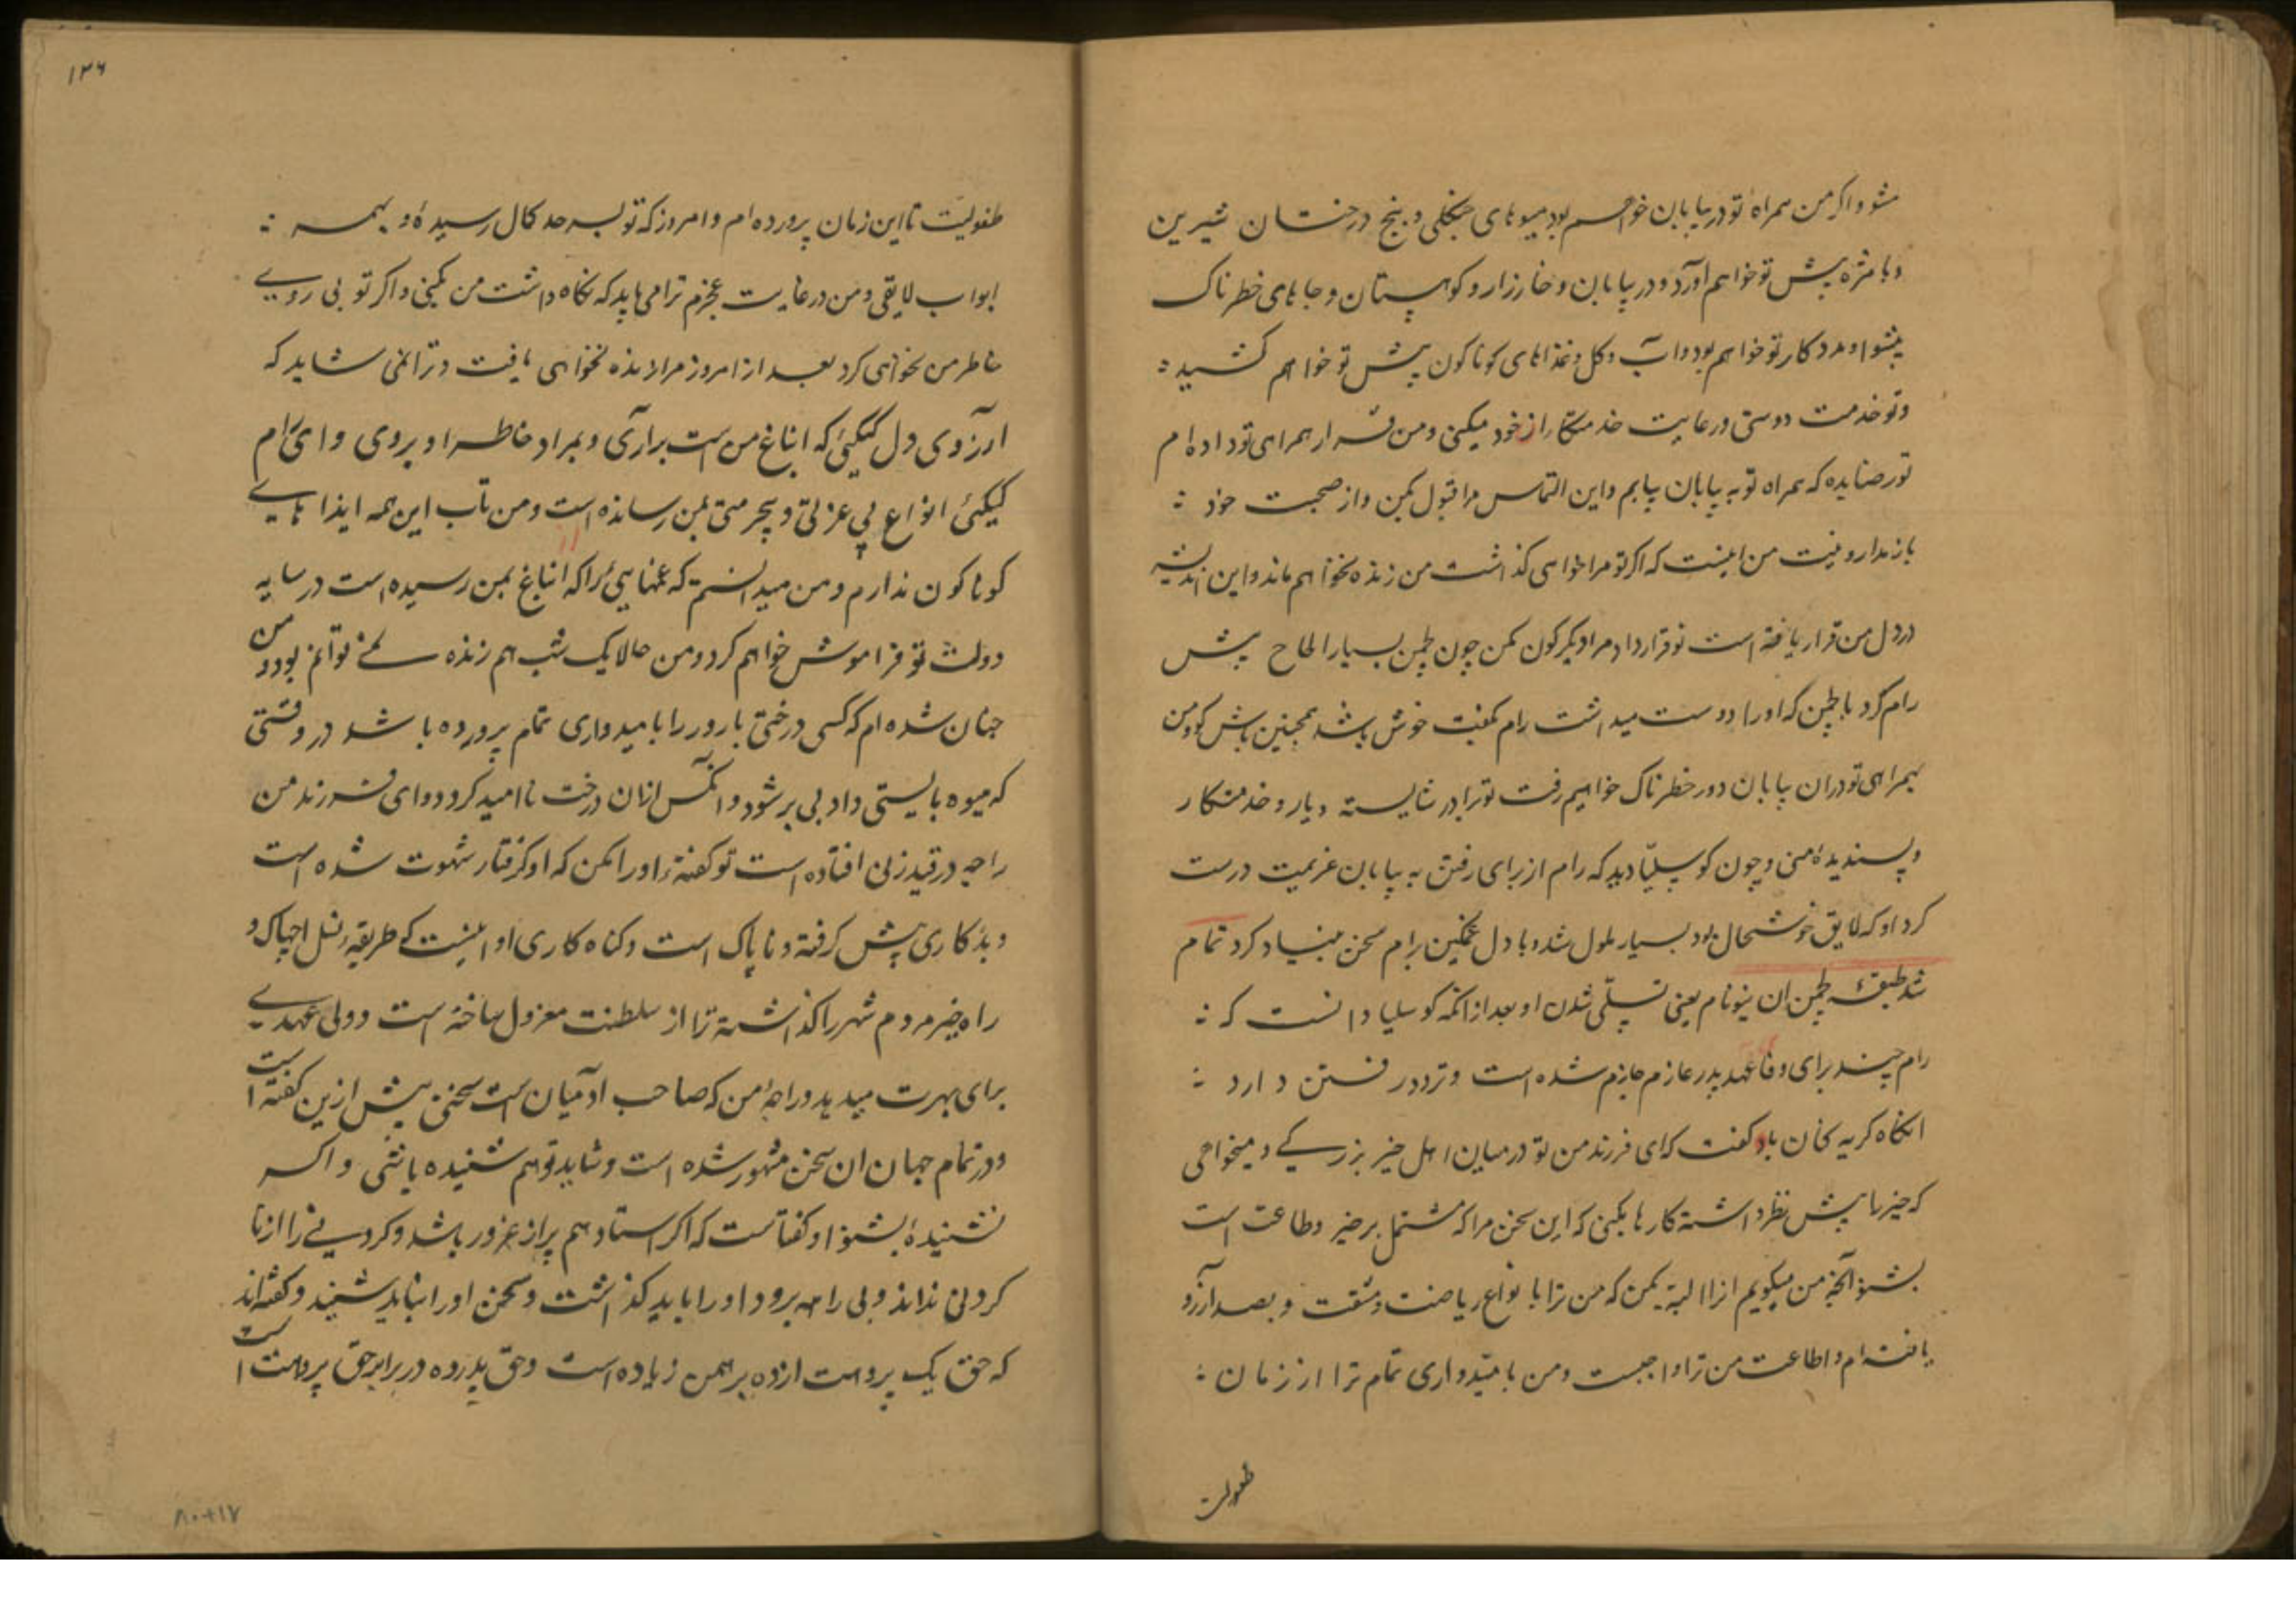 شو و اکر من همراه تو در بیابان خواهم بود میوهای جنکلی و بیخ درختان شیرین
و با مزه پیش تو خواهم آورد و در بیابان و خارزار و کوهستان و جاهای خطرناک
پیشوا و مددکار تو خواهم بود و آب و کل و غذاهای کوناکون پیش تو خواهم کشید
و تو خدمت دوستی و رعایت خدمتکار از خود میکنی و من قرار همراهی تو داده ام
تو رضا بده که همراه تو به بیابان بیایم و این التماس مرا قبول بکن و از صحبت خود
باز مدار و نیت من اینست که اکر تو مرا خواهی کذاشت من زنده نخواهم ماند و این اندیشه
در دل من قرار یافته است تو قرارداد مرا دیکرکون مکن چون لچمن بسیار الحاح پیش
رام کرد با لچمن که او را دوست میداشت رام بکفت خوش باشد همچنین باش که تو و من
بهمراهی تو در ان بیابان دور خطرناک خواهیم رفت تو برادر شایسته و یار و خدمتکار
و پسندیدهٔ منی و چون کوسلیا دید که رام از برای رفتن به بیابان عزیمت درست
کرد او که لایق خوشحال بود بسیار ملول شد و با دل غمکین برام سخن بنیاد کرد تمام
شد طبقهٔ لچمن ان ینو نام یعنی تسلّی شدن او بعد از انکه کوسلیا دانست که
رام چند برای وفا عهد پدر عازم جازم شده است و تردد رفتن دارد
انکاه کریه کنان باو کفت که ای فرزند من تو در میان اهل خیر بزرکے و میخواهی
که خیر را پیش نظر داشته کارها بکنی که این سخن مرا که مشتمل بر خیر و طاعت است
بشنو آنچه من میکویم انرا البته بکن که من ترا با نواع ریاضت و مشقت و بصد آرزو
یافته ام و اطاعت من ترا واجبست و من با متیدواری تمام ترا از زمان
طفولیت
۱۲۶
طفولیت تا این زمان پرورده ام و امروز که تو بسر حد کمال رسیدهٔ و بهمه
ابواب لایقی و من در غایت عجزم ترا می باید که نکاه داشت من بکنی و اکر تو بی رویے
خاطر من نخواهی کرد بعد از امروز مرا زنده نخواهی یافت و ترا نمی شاید که
آرزوی دل کیکیٔ که انباغ من است برآری و بمراد خاطر او بروی و ای رام
کیکیٔ انواع بی عزتی و بیحرمتی بمن رسانده است و من تاب این همه ایذا هاے
کوناکون ندارم و من میدانستم که غمهایی را که از انباغ بمن رسیده است در سایه
دولت تو فراموش خواهم کرد و من حالا یک شب هم زنده نمے توانم بود و من
چنان شده ام که کسی درختی بارور را بامیدواری تمام پرورده باشد در وقتی
که میوه بایستی داد بی بر شود و انکس ازان درخت نا امید کردد و ای فرزند من
راجه در قید زنی افتاده است تو کفتهٔ او را مکن که او کرفتار شهوت شده است
و بدکاری پیش کرفته و ناپاک است و کناه کاری او اینست که طریقهٔ نسل اچپاک و
راه خیر مردم شهر را کذاشته ترا از سلطنت معزول ساخته است و ولی عهدے
برای بهرت میدهد و راجهٔ من که صاحب ادمیان است سخنی پیش ازین کفته است
و در تمام جهان ان سخن مشهور شده است و شاید تو هم شنیده باشی و اکر
نشنیدهٔ بشنو او کفتاست که اکر استاد هم پر از غرور باشد و کردنے را از نا
کردنی نداند و بی راهه برود او را باید کذاشت و سخن او را نباید شنید و کفته اند
که حق یک پروهت از ده برهمن زیاده است و حق پدر ده در برابر حق پروهت است
۸۰+۱۷